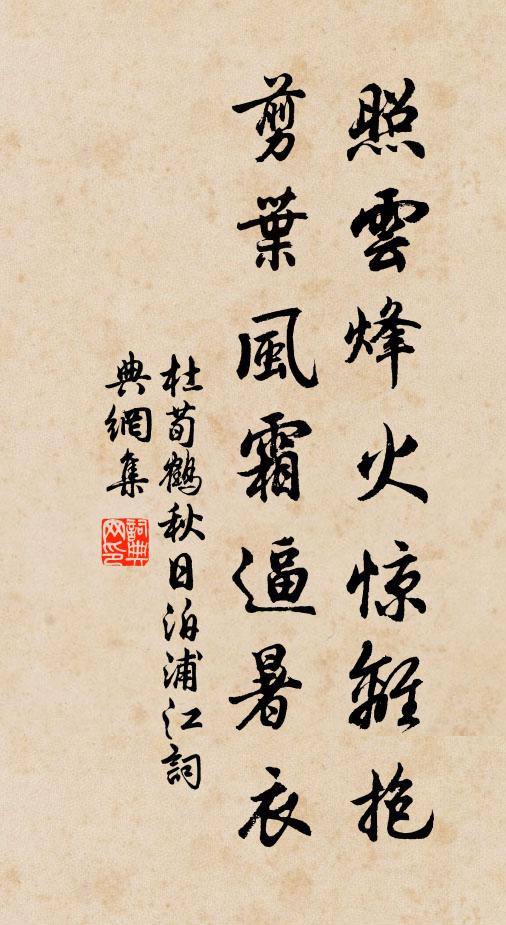 照雲烽火惊離抱
剪葉風霜逼暑衣
杜荀鶴秋日泊浦江詞
典網集
詞典网印